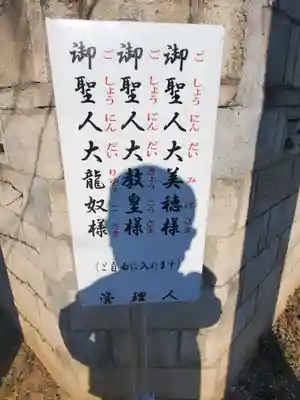 御聖人大美穂様
ごしょうにんだいみほさま
御聖人大教皇様
ごしょうにんだいきょうこうさま
御聖人大龍奴様
ごしょうにんだい
(ご自由に入れます)
管理人